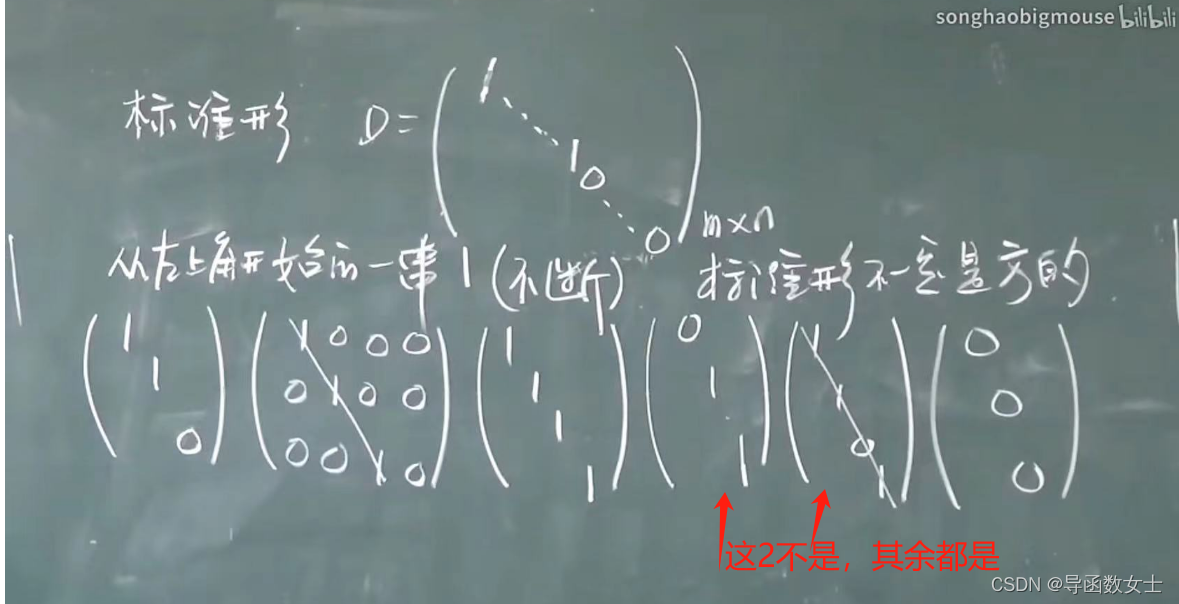 songhaobigmouse bilibili
标准形 D = ( 1 ⋱ 1 0 ⋱ 0 ) m×n
从左上角开始的一串1(不断) 标准形不一定是方的
( 1 1 0 ) ( 1 0 0 0 0 1 0 0 0 0 1 0 ) ( 1 1 1 1 ) ( 0 1 1 ) ( 1 1 0 1 ) ( 0 0 0 )
这2不是，其余都是
CSDN @导函数女士